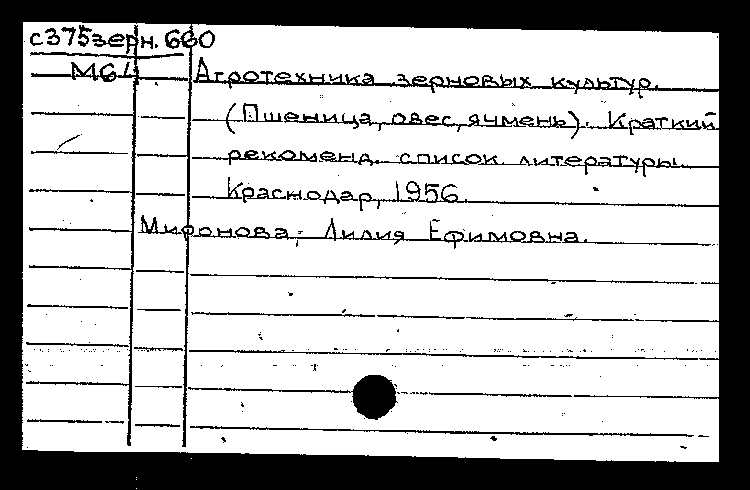 с375зерн. 660
М64 Агротехника зерновых культур.
(Пшеница, овес, ячмень). Краткий
рекоменд. список литературы.
Краснодар, 1956.
Миронова, Лилия Ефимовна.